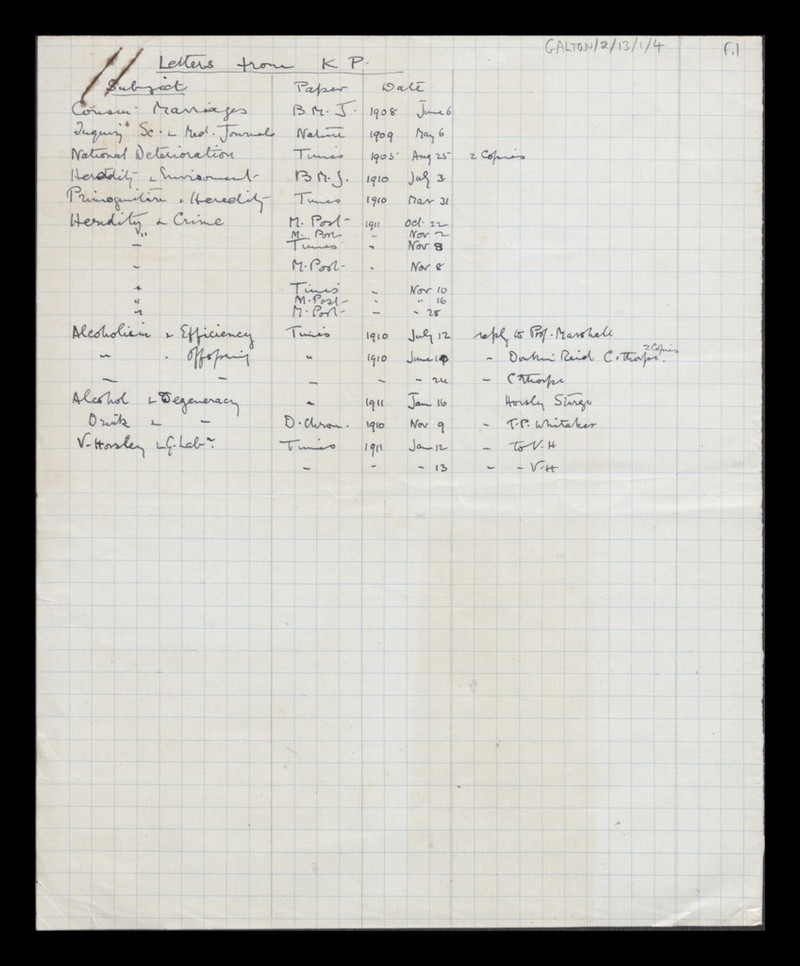 GALTON/2/13/1/4 F.1
Letters from K P.
Subject Paper Date
Cousin Marriages B M. J. 1908 June 6
Inquiry Sc. & Med. Journals Nature 1909 May 6
National Deterioration Times 1905 Aug 25 2 Copies
Heredity & Environment B M. J. 1910 July 3
Primogeniture & Heredity Times 1910 Mar 31
Heredity & Crime M. Post 1911 Oct. 22
" M. Post – Nov 2
– Times " Nov 8
– M. Post - . Nov 8
" Times – Nov 10
" M. Post – " " 16
" M. Post – – – 28
Alcoholism & Efficiency Times 1910 July 12 reply to Prof. Marshall
" . Offspring " 1910 June 10 – Reid C. Thorpe. 2 Copies
– – – – – 24 – C Thorpe
Alcohol & Degeneracy " 1911 Jan 16 Horsley Sturge
Drink & – D. Chron. 1910 Nov 9 – T.P. Whitaker
V-Horsley & G. Laby. Times 1911 Jan 12 – To V. H
– – – 13 – – V-H